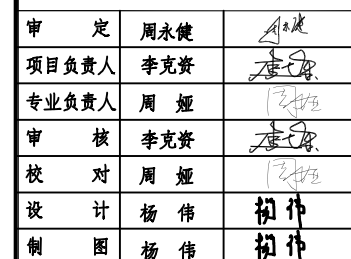 审 定 周永健 周永健
项目负责人 李克资 李克资
专业负责人 周 娅 周娅
审 核 李克资 李克资
校 对 周 娅 周娅
设 计 杨 伟 杨伟
制 图 杨 伟 杨伟